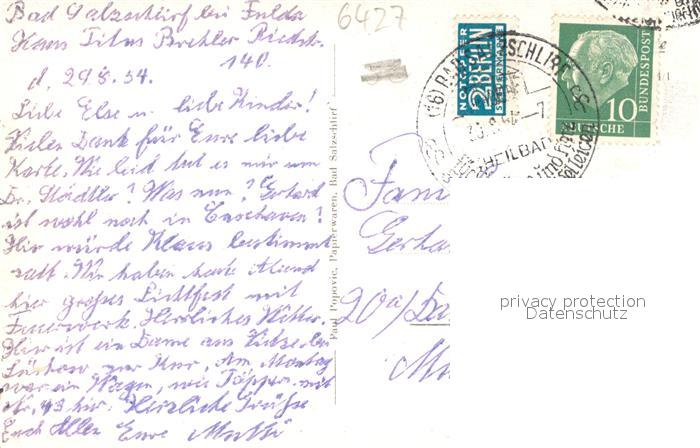 Bad Salzschlirf bei Fulda
Haus Titus
140.
d. 29.8.54.
Liebe Else u. liebe Kinder!
Vielen Dank für Eure liebe
Karte. Wie leid tut es mir um
Dr. Städler? Was nun? Gerhard
ist wohl noch in Cuxhaven?
Hier würde Klaus bestimmt
satt. Wir haben heute Abend
hier großes Lichtfest mit
Feuerwerk. Herrliches Wetter.
Hier ist eine Dame aus
zur Kur. Am Montag
war ein Wagen, wie Töpper mit
Nr. 43 hier. Herzliche Grüße
Euch Allen Eure Mutti
6427
NOTOPFER
2 BERLIN
STEUERMARKE
DEUTSCHE
BUNDESPOST
10
(16) BAD SALZSCHLIRF
HEILBAD
Paul Popovic, Papierwaren, Bad Salzschlirf
Fam
Gerha
20a/
privacy protection
Datenschutz